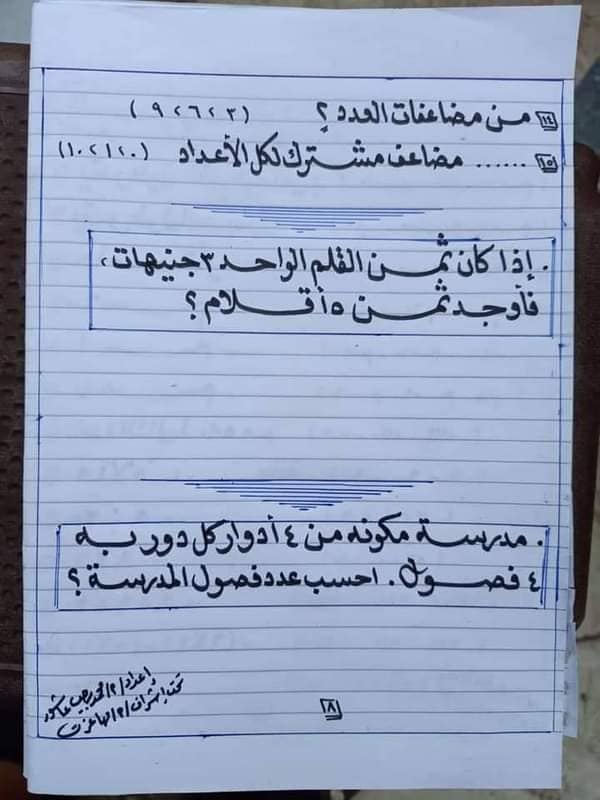 ١٤ من مضاعفات العدد ٢ (٣ ، ٦ ، ٩)
١٥ ...... مضاعف مشترك لكل الأعداد (٠ ، ١ ، ١٠)
. إذا كان ثمن القلم الواحد ٣ جنيهات ،
فأوجد ثمن ٥ أقلام ؟
. مدرسة مكونه من ٤ أدوار كل دور به
٤ فصول . احسب عدد فصول المدرسة ؟
إعداد / أ / محمد عاشور
تحت إشراف / أ / مها عزت
٨